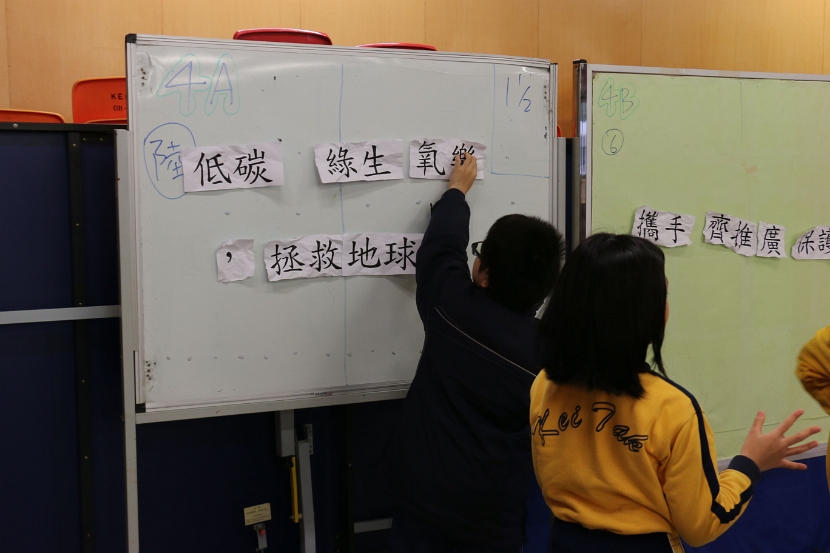 4A
1 1/2
陸 低碳 綠生 氧樂
，拯救地球
4B
6
攜手 齊推廣 保護
Kei Tak